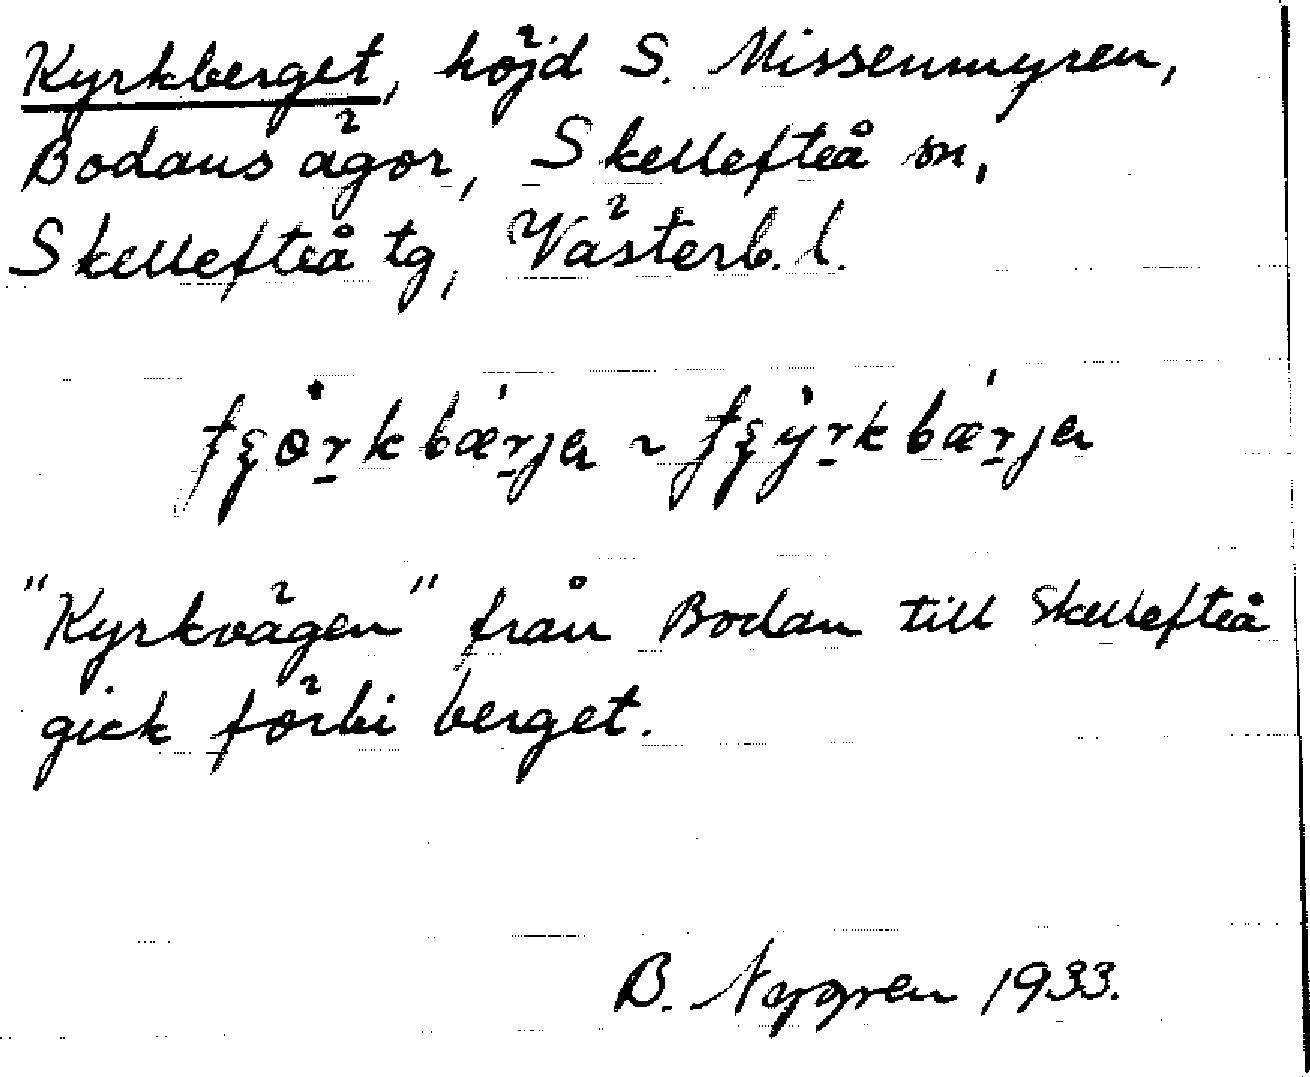 Kyrkberget, höjd S. Missenmyren,
Bodans ägor, Skellefteå sn,
Skellefteå tg, Västerb. l.
"Kyrkvägen" från Bodan till Skellefteå
gick förbi berget.
B. Nygren 1933.